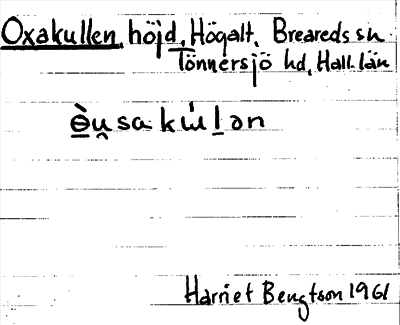 Oxakullen, höjd, Högalt, Breareds sn.
Tönnersjö hd, Hall. län
ɵ̠̀u̯sakɯ́l̠ən
Harriet Bengtson 1961